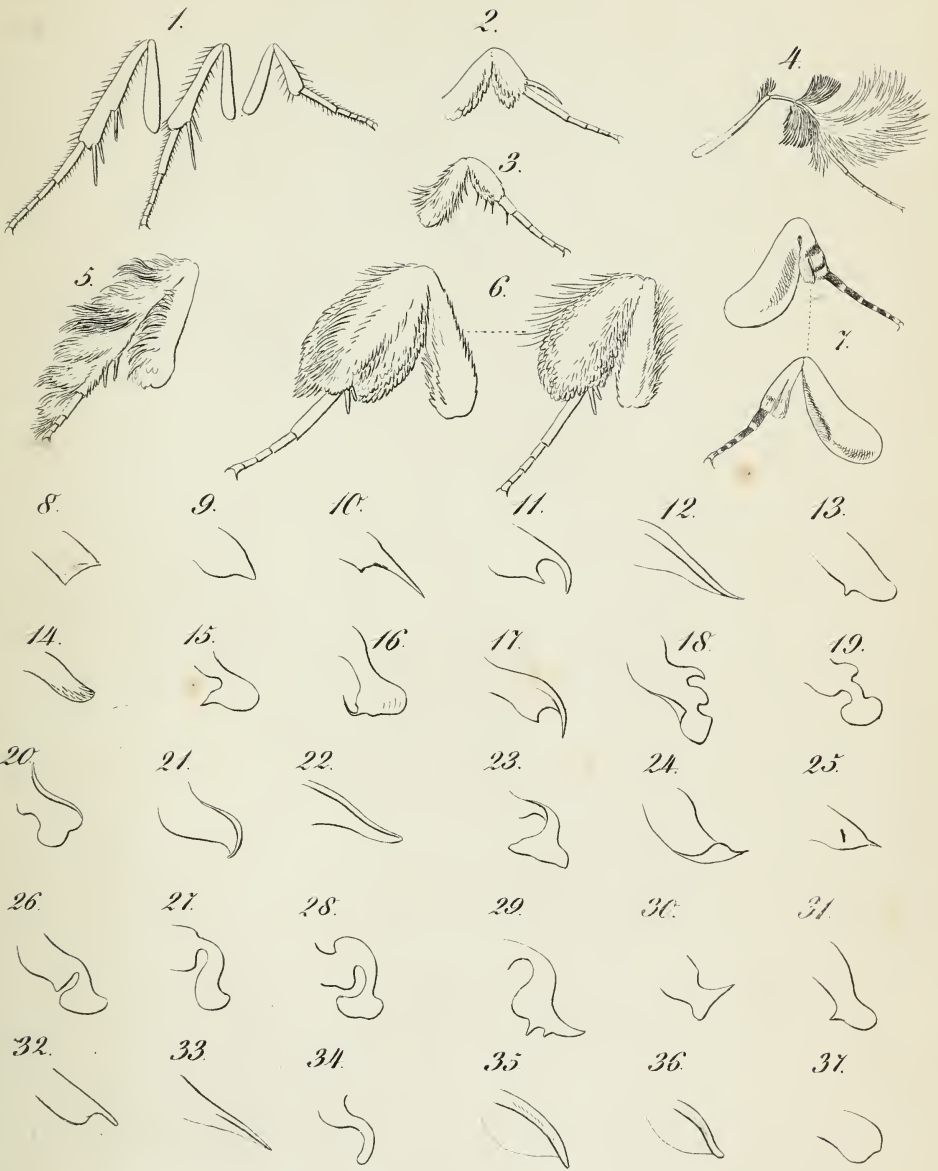 1.
2.
3.
4.
5.
6.
7.
8.
9.
10.
11.
12.
13.
14.
15.
16.
17.
18.
19.
20.
21.
22.
23.
24.
25.
26.
27.
28.
29.
30.
31.
32.
33.
34.
35.
36.
37.